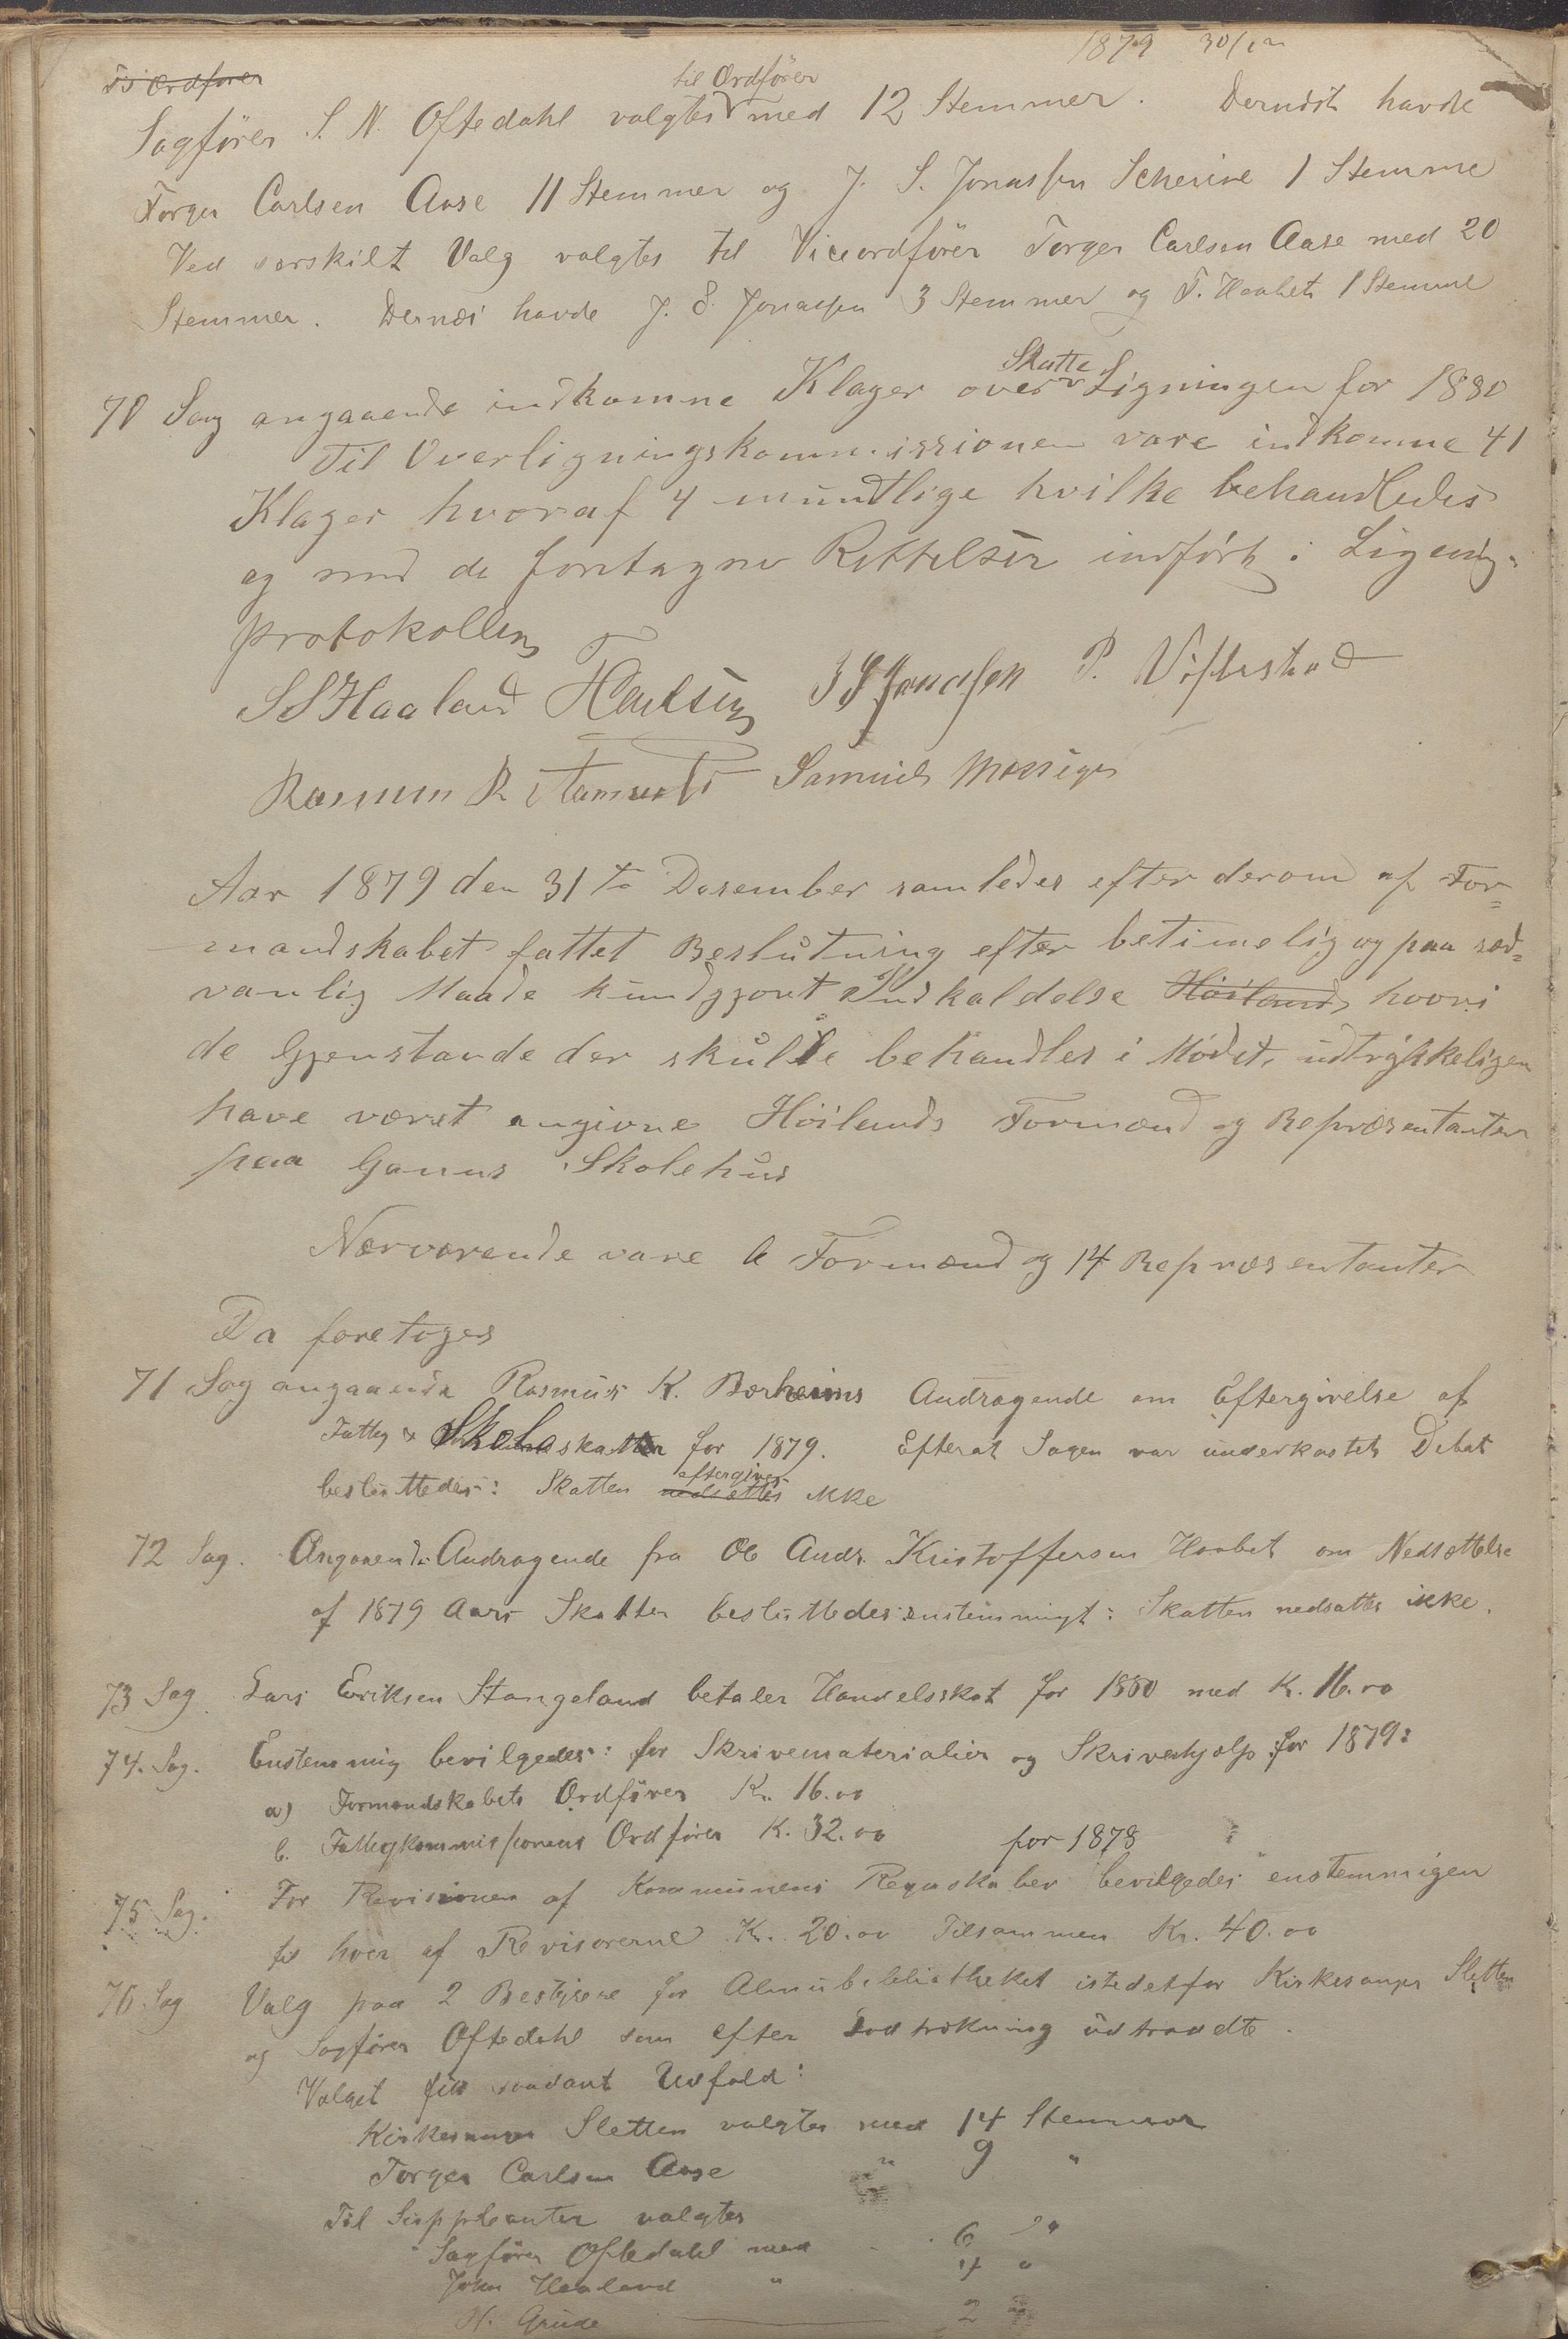 1879 30/12
Til Ordfører
til Ordfører
Sagfører S. N. Oftedahl valgtes med 12 Stemmer. Dernæst havde
Torger Carlsen Aase 11 Stemmer og J. S. Jonassen Scherine 1 Stemme
Ved særskilt Valg valgtes til Viceordfører Torger Carlsen Aase med 20
Stemmer. Dernæst havde J. S. Jonassen 3 Stemmer og T. Haabet 1 Stemme
70 Sag angaaende indkomne Klager over Skatte Ligningen for 1880
Til Overligningskommissionen vare indkomne 41
Klager hvoraf 4 mundtlige hvilke behandledes
og med de foretagne Rettelser indført i Ligning-
protokollen
S S Haaland T Carlsen J S Jonassen P. Vistestad
Rasmus R Samuel Mossige
Aar 1879 den 31te Desember samledes efter derom af For=
mandskabet fattet Beslutning efter betimelig og paa sæd=
vanlig Maade kundgjort Indkaldelse Høilands hvori
de Gjenstande der skulle behandles i Mødet, udtrykkeligen
have været angivne Høilands Formænd og Repræsentanter
paa Ganns Skolehus
Nærværende vare 6 Formænd og 14 Repræsentanter
Da foretoges
71 Sag angaaende Rasmus K. Bærheims Andragende om Eftergivelse af
Fattig & Skoleskatten for 1879. Efterat Sagen var underkastet Debat
besluttedes: Skatten nedsættes eftergives ikke
72 Sag. Angaaende Andragende fra Ole Andr. Kristoffersen Haabet om Nedsættelse
af 1879 Aars Skatter besluttedes enstemmigt: Skatten nedsættes ikke.
73 Sag Lars Eriksen Stangeland betaler Handelsskat for 1880 med K. 16.00
74. Sag. Enstemmig bevilgedes: for Skrivematerialier og Skrivehjælp for 1879:
a) Formandskabets Ordfører Kr. 16.00
b. Fattigkommissionens Ordfører K. 32.00
for 1878
75 Sag. For Revisionen af Kommunens Regnskaber bevilgedes enstemmigen
til hver af Revisorerne K. 20.00 Tilsammen Kr. 40.00
76. Sag Valg paa 2 Bestyrere for Almubibliotheket istedetfor Kirkesanger Sletten
og Sagfører Oftedahl som efter Lodtrækning udtraadte.
Valget fik saadant Udfald:
Kirkesanger Sletten valgtes med 14 Stemmer
Torger Carlsen Aase " 9 "
Til Suppleanter valgtes
Sagfører Oftedahl med 6 "
John Haaland " 4 "
H. Grude 2 "